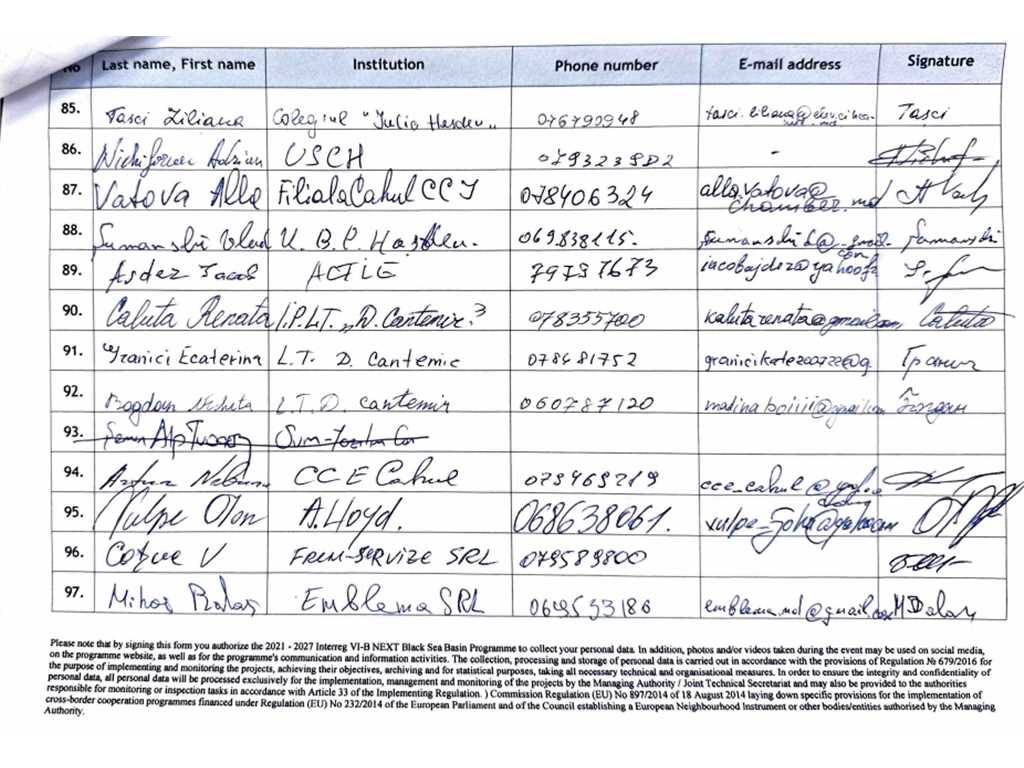 No Last name, First name Institution Phone number E-mail address Signature
85. Tasci Liliana Colegiul "Iulia Hasdeu" 076790948 Tasci
86. Adrian USCH -
87. Vatova Alla Filiala Cahul CCI 078406324 alla.vatova@
chamber.md
88. Sumanschi Vlad H. 069838115.
89. Ajder Iacob ACTIE 79797673 iacobajder2@yahoo.fr
90. Caluta Renata I.P.L.T. "D. Cantemir" 078355700 kalutarenata@gmail.com Caluta
91. Granici Ecaterina L.T. D. Cantemir 078481752 Гранич
92. Bogdan L.T. D. Cantemir 060787120 Богдан
93.
94. Artur CCE Cahul 079469219 cce_cahul@yahoo
95. Vulpe Ion A. Lloyd. 068638061.
96. V FREM-SERVIZE SRL 079589800
97. Mihai Balas Emblema SRL 069533186 emblema.md@gmail.com MBalas
Please note that by signing this form you authorize the 2021 - 2027 Interreg VI-B NEXT Black Sea Basin Programme to collect your personal data. In addition, photos and/or videos taken during the event may be used on social media,
on the programme website, as well as for the programme's communication and information activities. The collection, processing and storage of personal data is carried out in accordance with the provisions of Regulation № 679/2016 for
the purpose of implementing and monitoring the projects, achieving their objectives, archiving and for statistical purposes, taking all necessary technical and organisational measures. In order to ensure the integrity and confidentiality of
personal data, all personal data will be processed exclusively for the implementation, management and monitoring of the projects by the Managing Authority / Joint Technical Secretariat and may also be provided to the authorities
responsible for monitoring or inspection tasks in accordance with Article 33 of the Implementing Regulation. ) Commission Regulation (EU) No 897/2014 of 18 August 2014 laying down specific provisions for the implementation of
cross-border cooperation programmes financed under Regulation (EU) No 232/2014 of the European Parliament and of the Council establishing a European Neighbourhood Instrument or other bodies/entities authorised by the Managing
Authority.